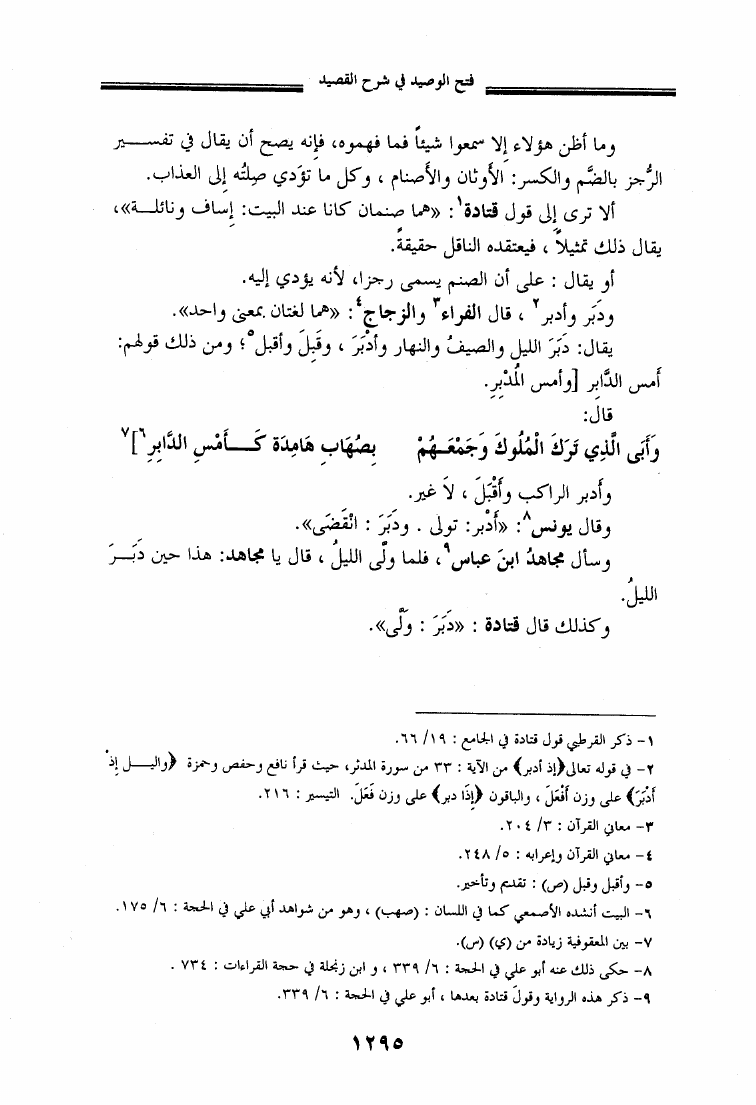 فتح الوصيد في شرح القصيد
وما أظن هؤلاء إلا سمعوا شيئاً فما فهموه، فإنه يصح أن يقال في تفسير
الرُّجز بالضَّم والكسر: الأوثان والأصنام ، وكل ما تؤدي صِلتُه إلى العذاب.
ألا ترى إلى قول قتادة١: «هما صنمان كانا عند البيت: إساف ونائلة»،
يقال ذلك تمثيلاً ، فيعتقده الناقل حقيقةً.
أو يقال : على أن الصنم يسمى رجزا، لأنه يؤدي إليه.
ودَبَر وأدبر٢ ، قال الفراء٣ والزجاج٤: «هما لغتان بمعنى واحد».
يقال: دَبَرَ الليل والصيفُ والنهار وأدْبَرَ ، وقَبِلَ وأقبل٥؛ ومن ذلك قولهم:
أمس الدَّابِر [وأمس المُدْبِرِ.
قال:
وَأَبَى الَّذِي تَرَكَ الْمُلُوكَ وَجَمْعَهُمْ بِصُهَابِ هَامِدَة كَأَمْسِ الدَّابِرِ٦]٧
وأدبر الراكب وأَقْبَلَ ، لاَ غير.
وقال يونس٨: «أَدْبر: تولى . ودَبَرَ : انْقَضَى».
وسأل مجاهدُ ابنَ عباس٩، فلما ولَّى الليلُ ، قال يا مجاهد: هذا حين دَبَرَ
الليلُ.
وكذلك قال قتادة : «دَبَرَ : ولَّى».
١- ذكر القرطبي قول قتادة في الجامع : ١٩/ ٦٦.
٢- في قوله تعالى﴿إذ أدبر﴾ من الآية : ٣٣ من سورة المدثر، حيث قرأ نافع وحفص وحمزة ﴿واليل إذْ
أَدْبَرَ﴾ على وزن أَفْعَلَ ، والباقون ﴿إِذَا دبر﴾ على وزن فَعَلَ. التيسير : ٢١٦.
٣- معاني القرآن : ٣/ ٢٠٤.
٤- معاني القرآن وإعرابه : ٥/ ٢٤٨.
٥- وأقبل وقبل (ص) : تقديم وتأخير.
٦- البيت أنشده الأصمعي كما في اللسان : (صهب) ، وهو من شواهد أبي علي في الحجة : ٦/ ١٧٥.
٧- بين المعقوفية زيادة من (ي) (س).
٨- حكى ذلك عنه أبو علي في الحجة : ٦/ ٣٣٩ ، و ابن زنجلة في حجة القراءات : ٧٣٤ .
٩- ذكر هذه الرواية وقولَ قتادة بعدها ، أبو علي في الحجة : ٦/ ٣٣٩.
١٢٩٥